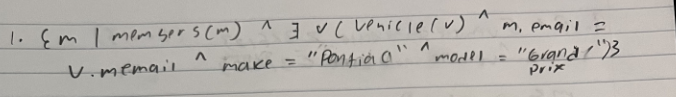 1. {m | members(m) ^ ∃ v(Vehicle(v) ^ m.email =
v.memail ^ make = "Pontiac" ^ model = "Grand
Prix")}